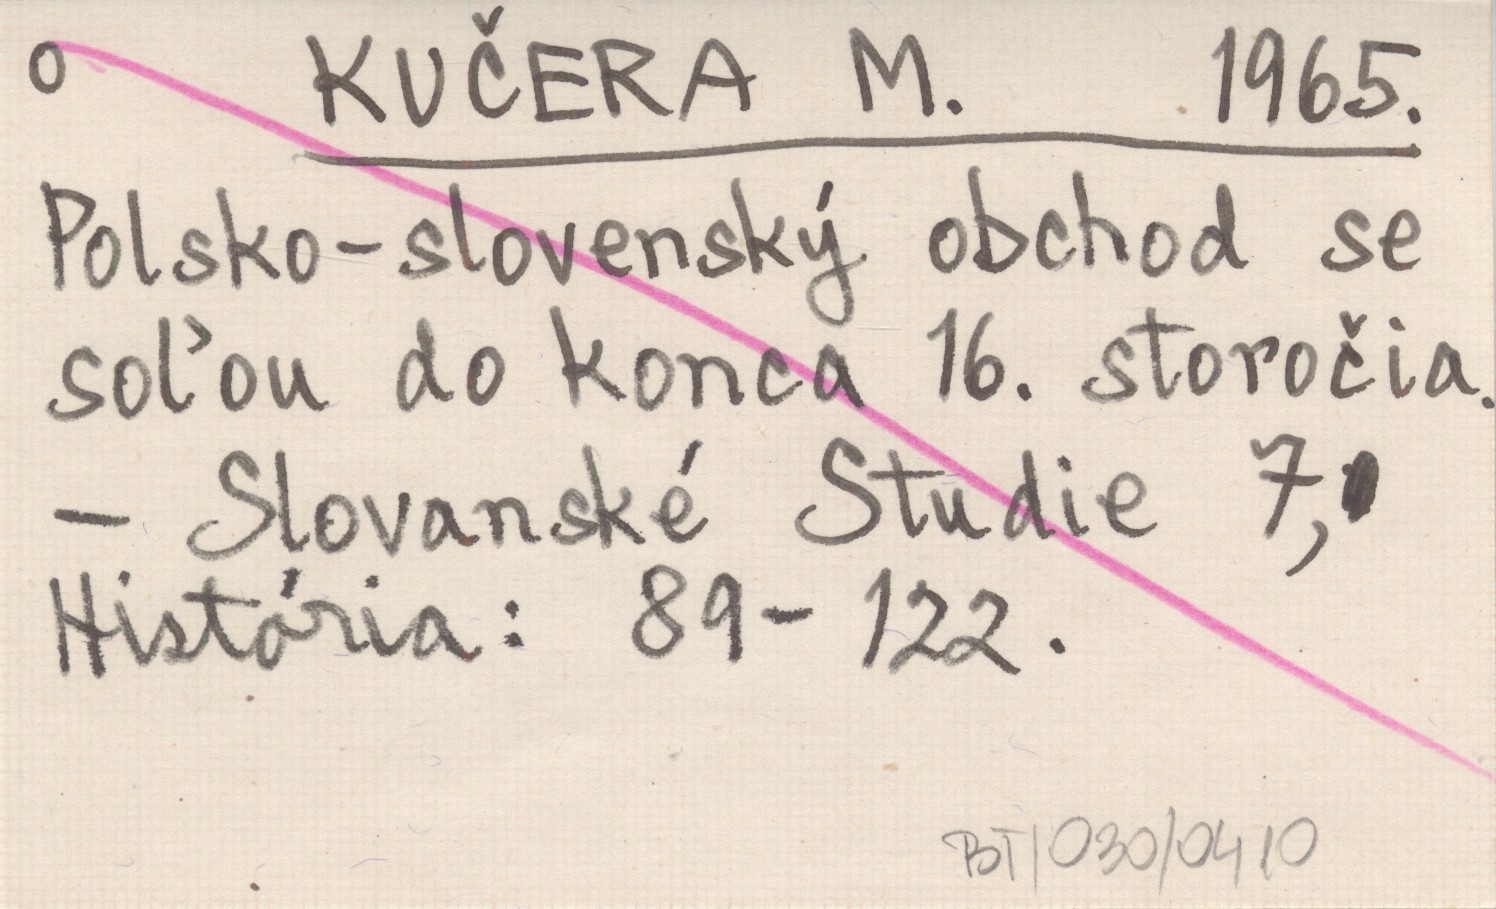 o KUČERA M. 1965.
Polsko-slovenský obchod se
soľou do konca 16. storočia.
– Slovanské Studie 7,
História: 89-122.
BT/030/0410